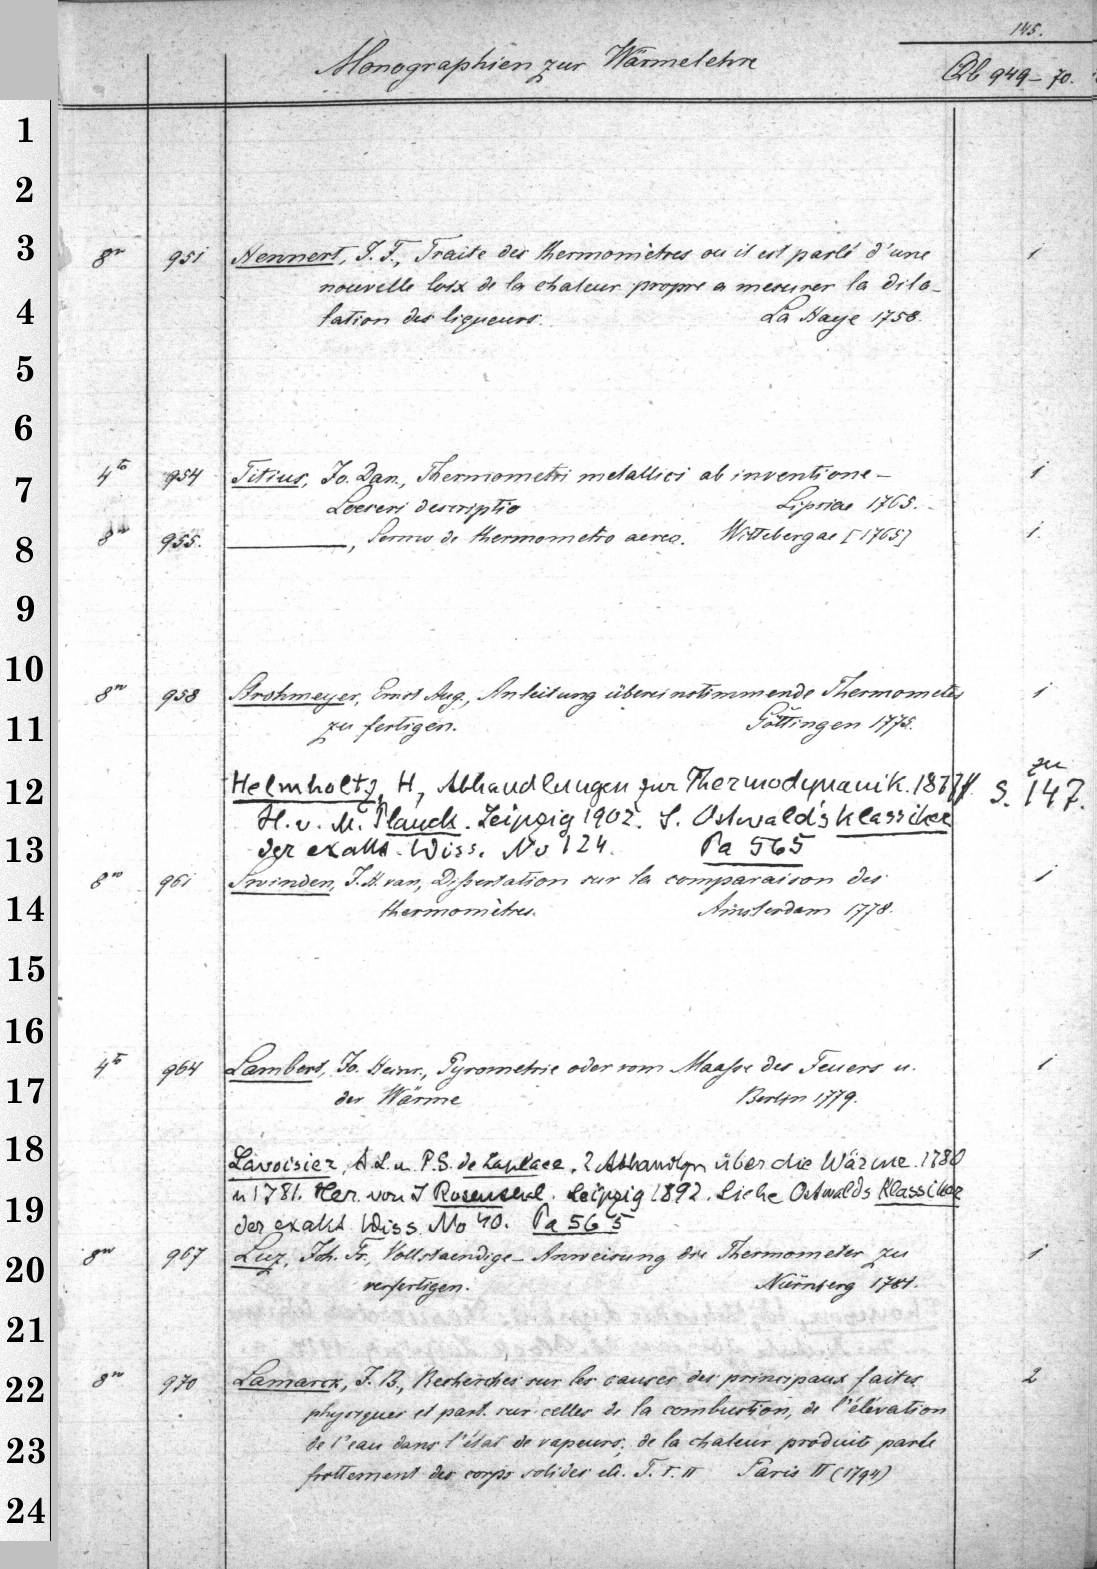 145.
Monographien zur Wärmelehre
Qb 949-70.
1
2
3
8vo 951 Hennert, J. F., Traite des thermomètres ou il est parlé d'une 1
nouvelle loix de la chaleur propre a mesurer la dila-
4
tation des liqueurs. La Haye 1758.
5
6
4to 954 Titius, Jo. Dan., Thermometri metallici ab inventione- 1
7
Loeseri descriptio Lipsiae 1765.
8
8vo 955. ———, Sermo de thermometro aereo. Wittebergae [1765] 1.
9
10
8vo 958 Strohmeyer, Ernst Aug., Anleitung übereinstimmende Thermometer 1
11
zu fertigen. Göttingen 1775.
zu
12
Helmholtz, H, Abhandlungen zur Thermodynamik. S. 147.
H. v. M. Planck. Leipzig 1902. S. Ostwald's Klassiker
13
der exakt. Wiss. No 124. Pa 565
8vo 961 Swinden, J. H. van, Dissertation sur la comparaison des 1
14
thermomètres. Amsterdam 1778.
15
16
4to 964 Lambert, Jo. Heinr., Pyrometrie oder vom Maaße des Feuers u. 1
17
der Wärme Berlin 1779.
18
Lavoisier, A. L. u. P. S. de Laplace, 2 Abhandlgn über die Wärme. 1780
u 1781. Her. von J Rosenthal. Leipzig 1892. Siehe Ostwalds Klassiker
19
der exakt. Wiss. No 40. Pa 565
8vo 967 Luz, Joh. Fr., Vollstaendige- Anweisung die Thermometer zu 1
20
verfertigen. Nürnberg 1781.
21
8vo 970 Lamarck, J. B., Recherches sur les causes des principaux faites 2
22
physiques et part. sur celles de la combustion, de l'élévation
23
de l'eau dans l'état de vapeurs; de la chaleur produite parle
frottement des corps solides etc. T. I. II Paris II (1794)
24